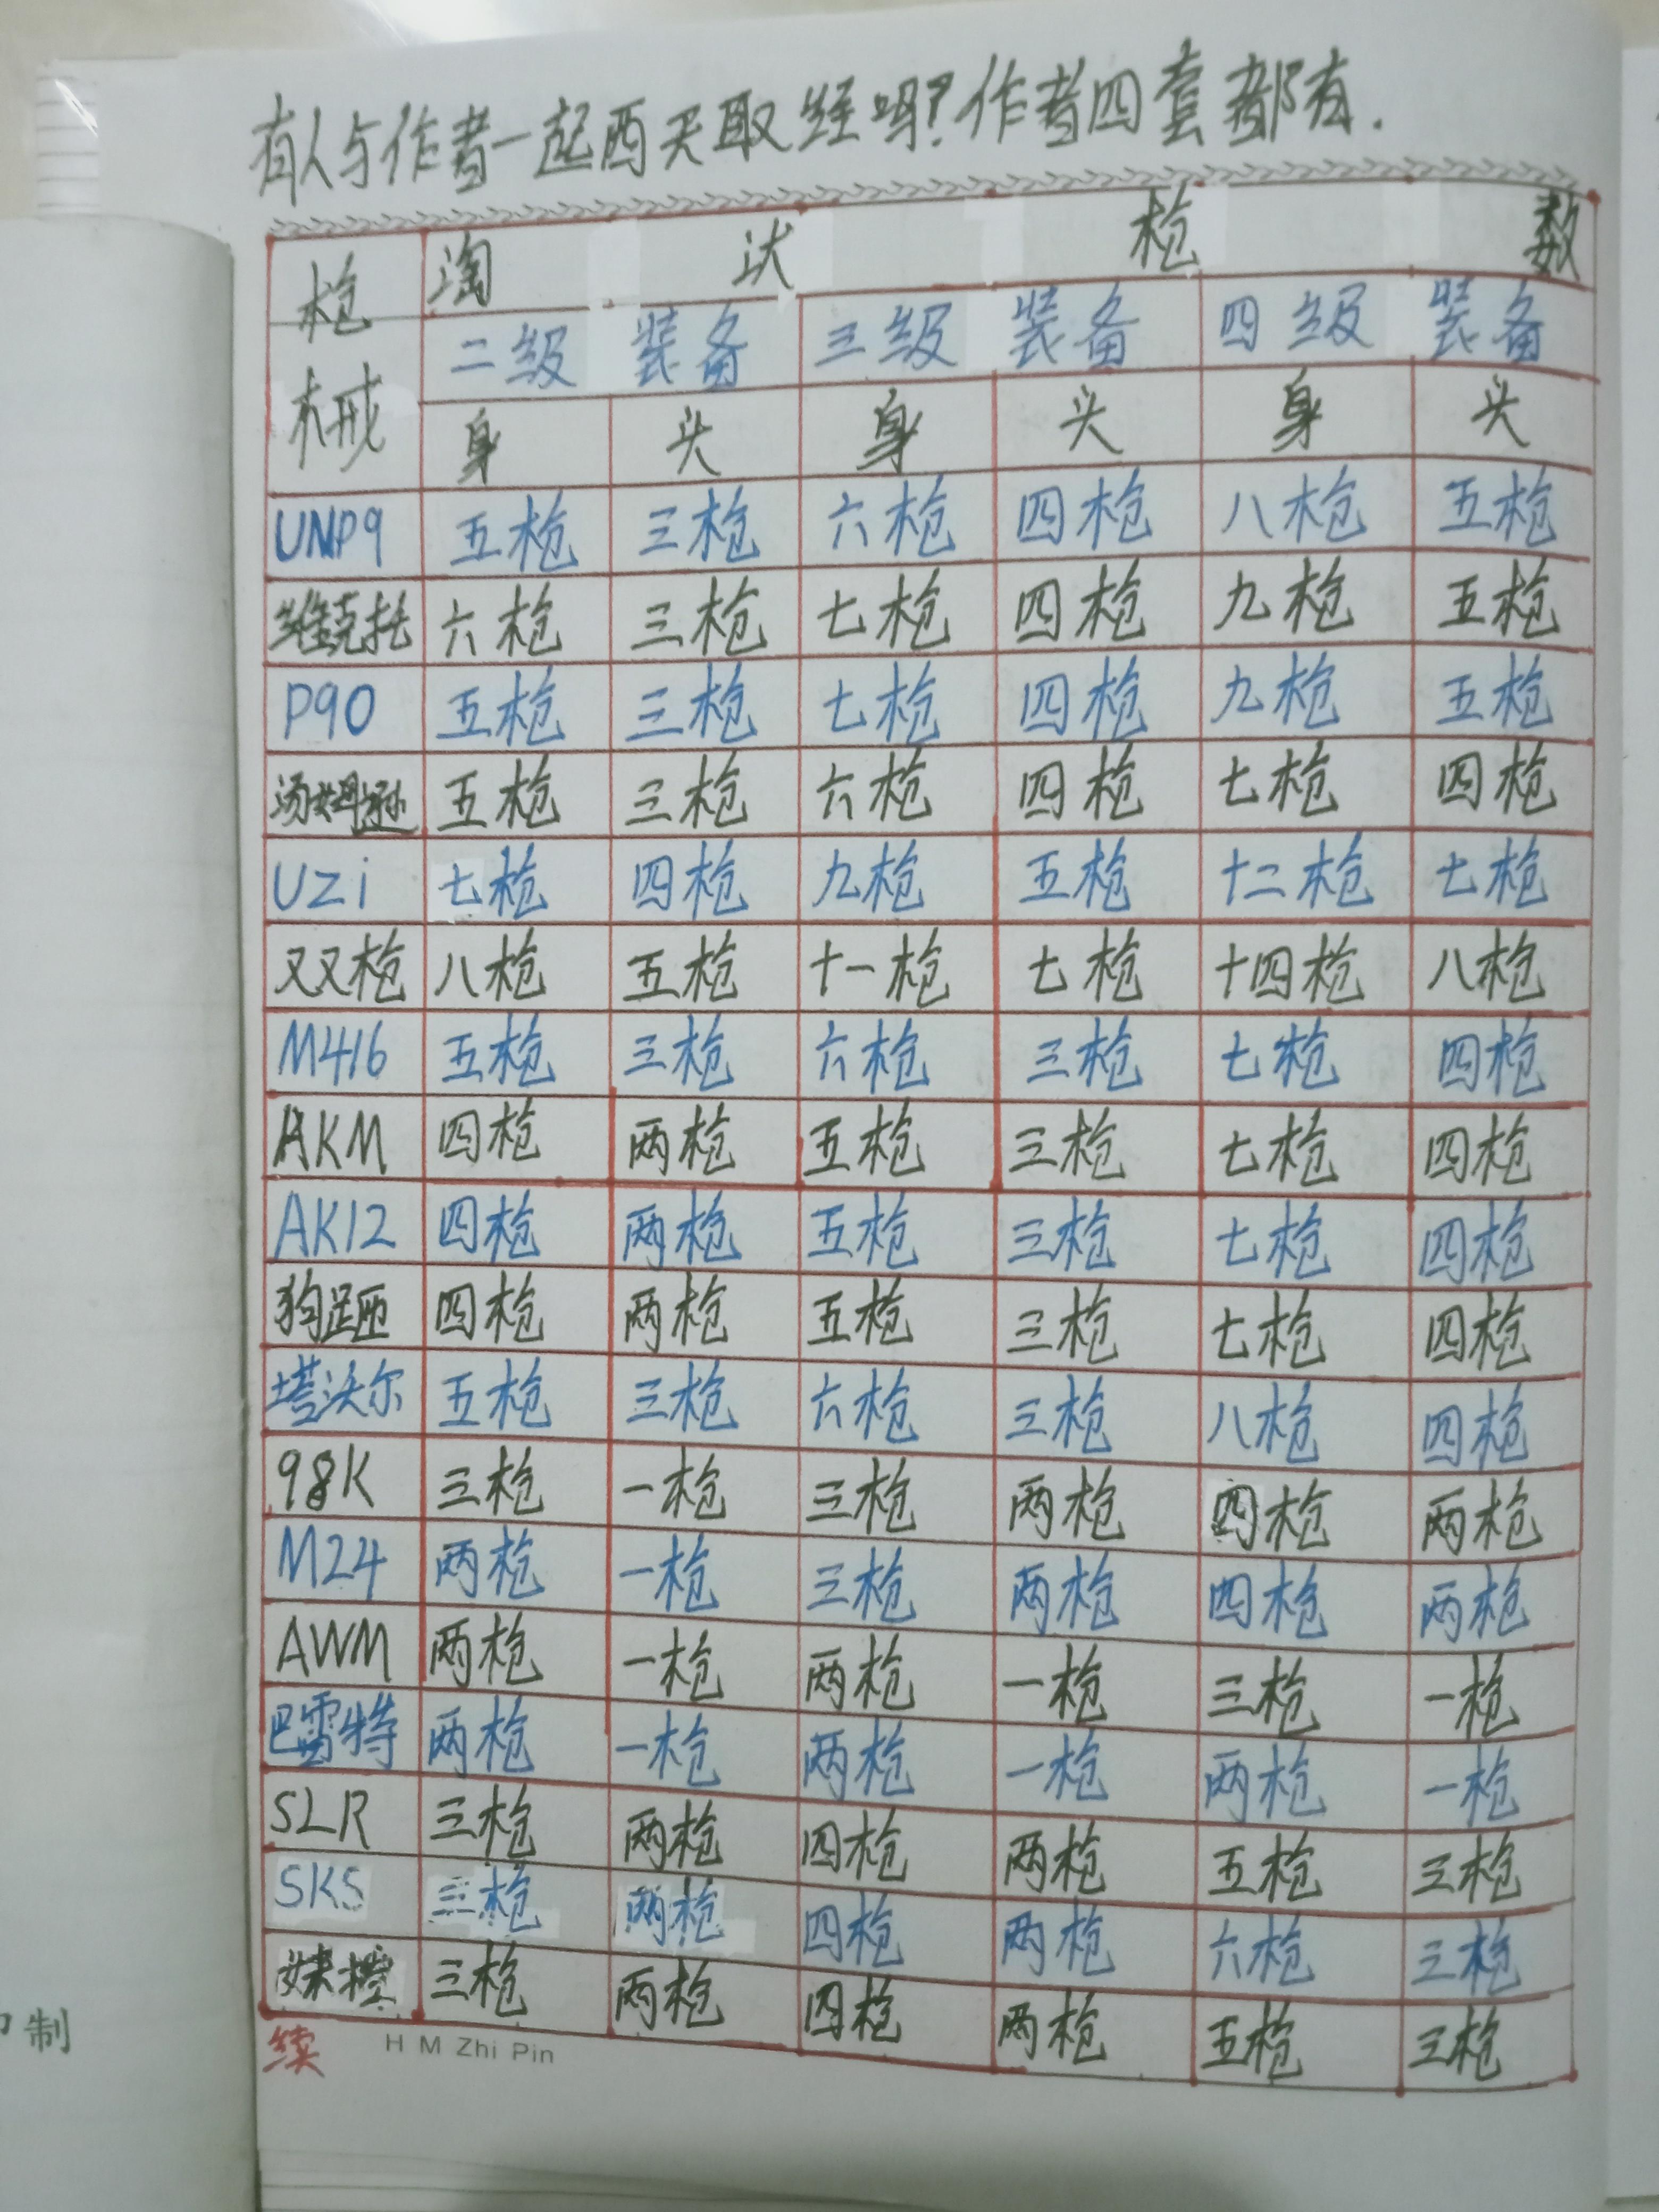 有人与作者一起西天取经吗?作者四套都有.
枪械 淘汰枪数
二级装备 三级装备 四级装备
身 头 身 头 身 头
UMP9 五枪 三枪 六枪 四枪 八枪 五枪
维克托 六枪 三枪 七枪 四枪 九枪 五枪
P90 五枪 三枪 七枪 四枪 九枪 五枪
汤姆逊 五枪 三枪 六枪 四枪 七枪 四枪
UZi 七枪 四枪 九枪 五枪 十二枪 七枪
双枪 八枪 五枪 十一枪 七枪 十四枪 八枪
M416 五枪 三枪 六枪 三枪 七枪 四枪
AKM 四枪 两枪 五枪 三枪 七枪 四枪
AK12 四枪 两枪 五枪 三枪 七枪 四枪
狗砸 四枪 两枪 五枪 三枪 七枪 四枪
塔沃尔 五枪 三枪 六枪 三枪 八枪 四枪
98K 三枪 一枪 三枪 两枪 四枪 两枪
M24 两枪 一枪 三枪 两枪 四枪 两枪
AWM 两枪 一枪 两枪 一枪 三枪 一枪
巴雷特 两枪 一枪 两枪 一枪 两枪 一枪
SLR 三枪 两枪 四枪 两枪 五枪 三枪
SKS 三枪 两枪 四枪 两枪 六枪 三枪
妹控 三枪 两枪 四枪 两枪 五枪 三枪
续 H M Zhi Pin
制